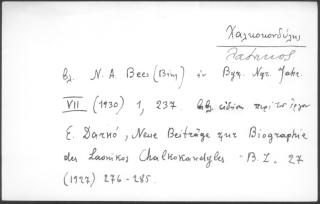 Χαλκοκονδύλης
Λαόνικος
βλ. N. A. Bees (Βέη) ἐν Byz. Ngr. Jahr.
VII (1930) 1, 237. βιβλ εἰδήσεις περὶ τὸ ἔργον
E. Darkó, Neue Beiträge zur Biographie
des Laonikos Chalkokandyles B. Z. 27
(1927) 276-285.